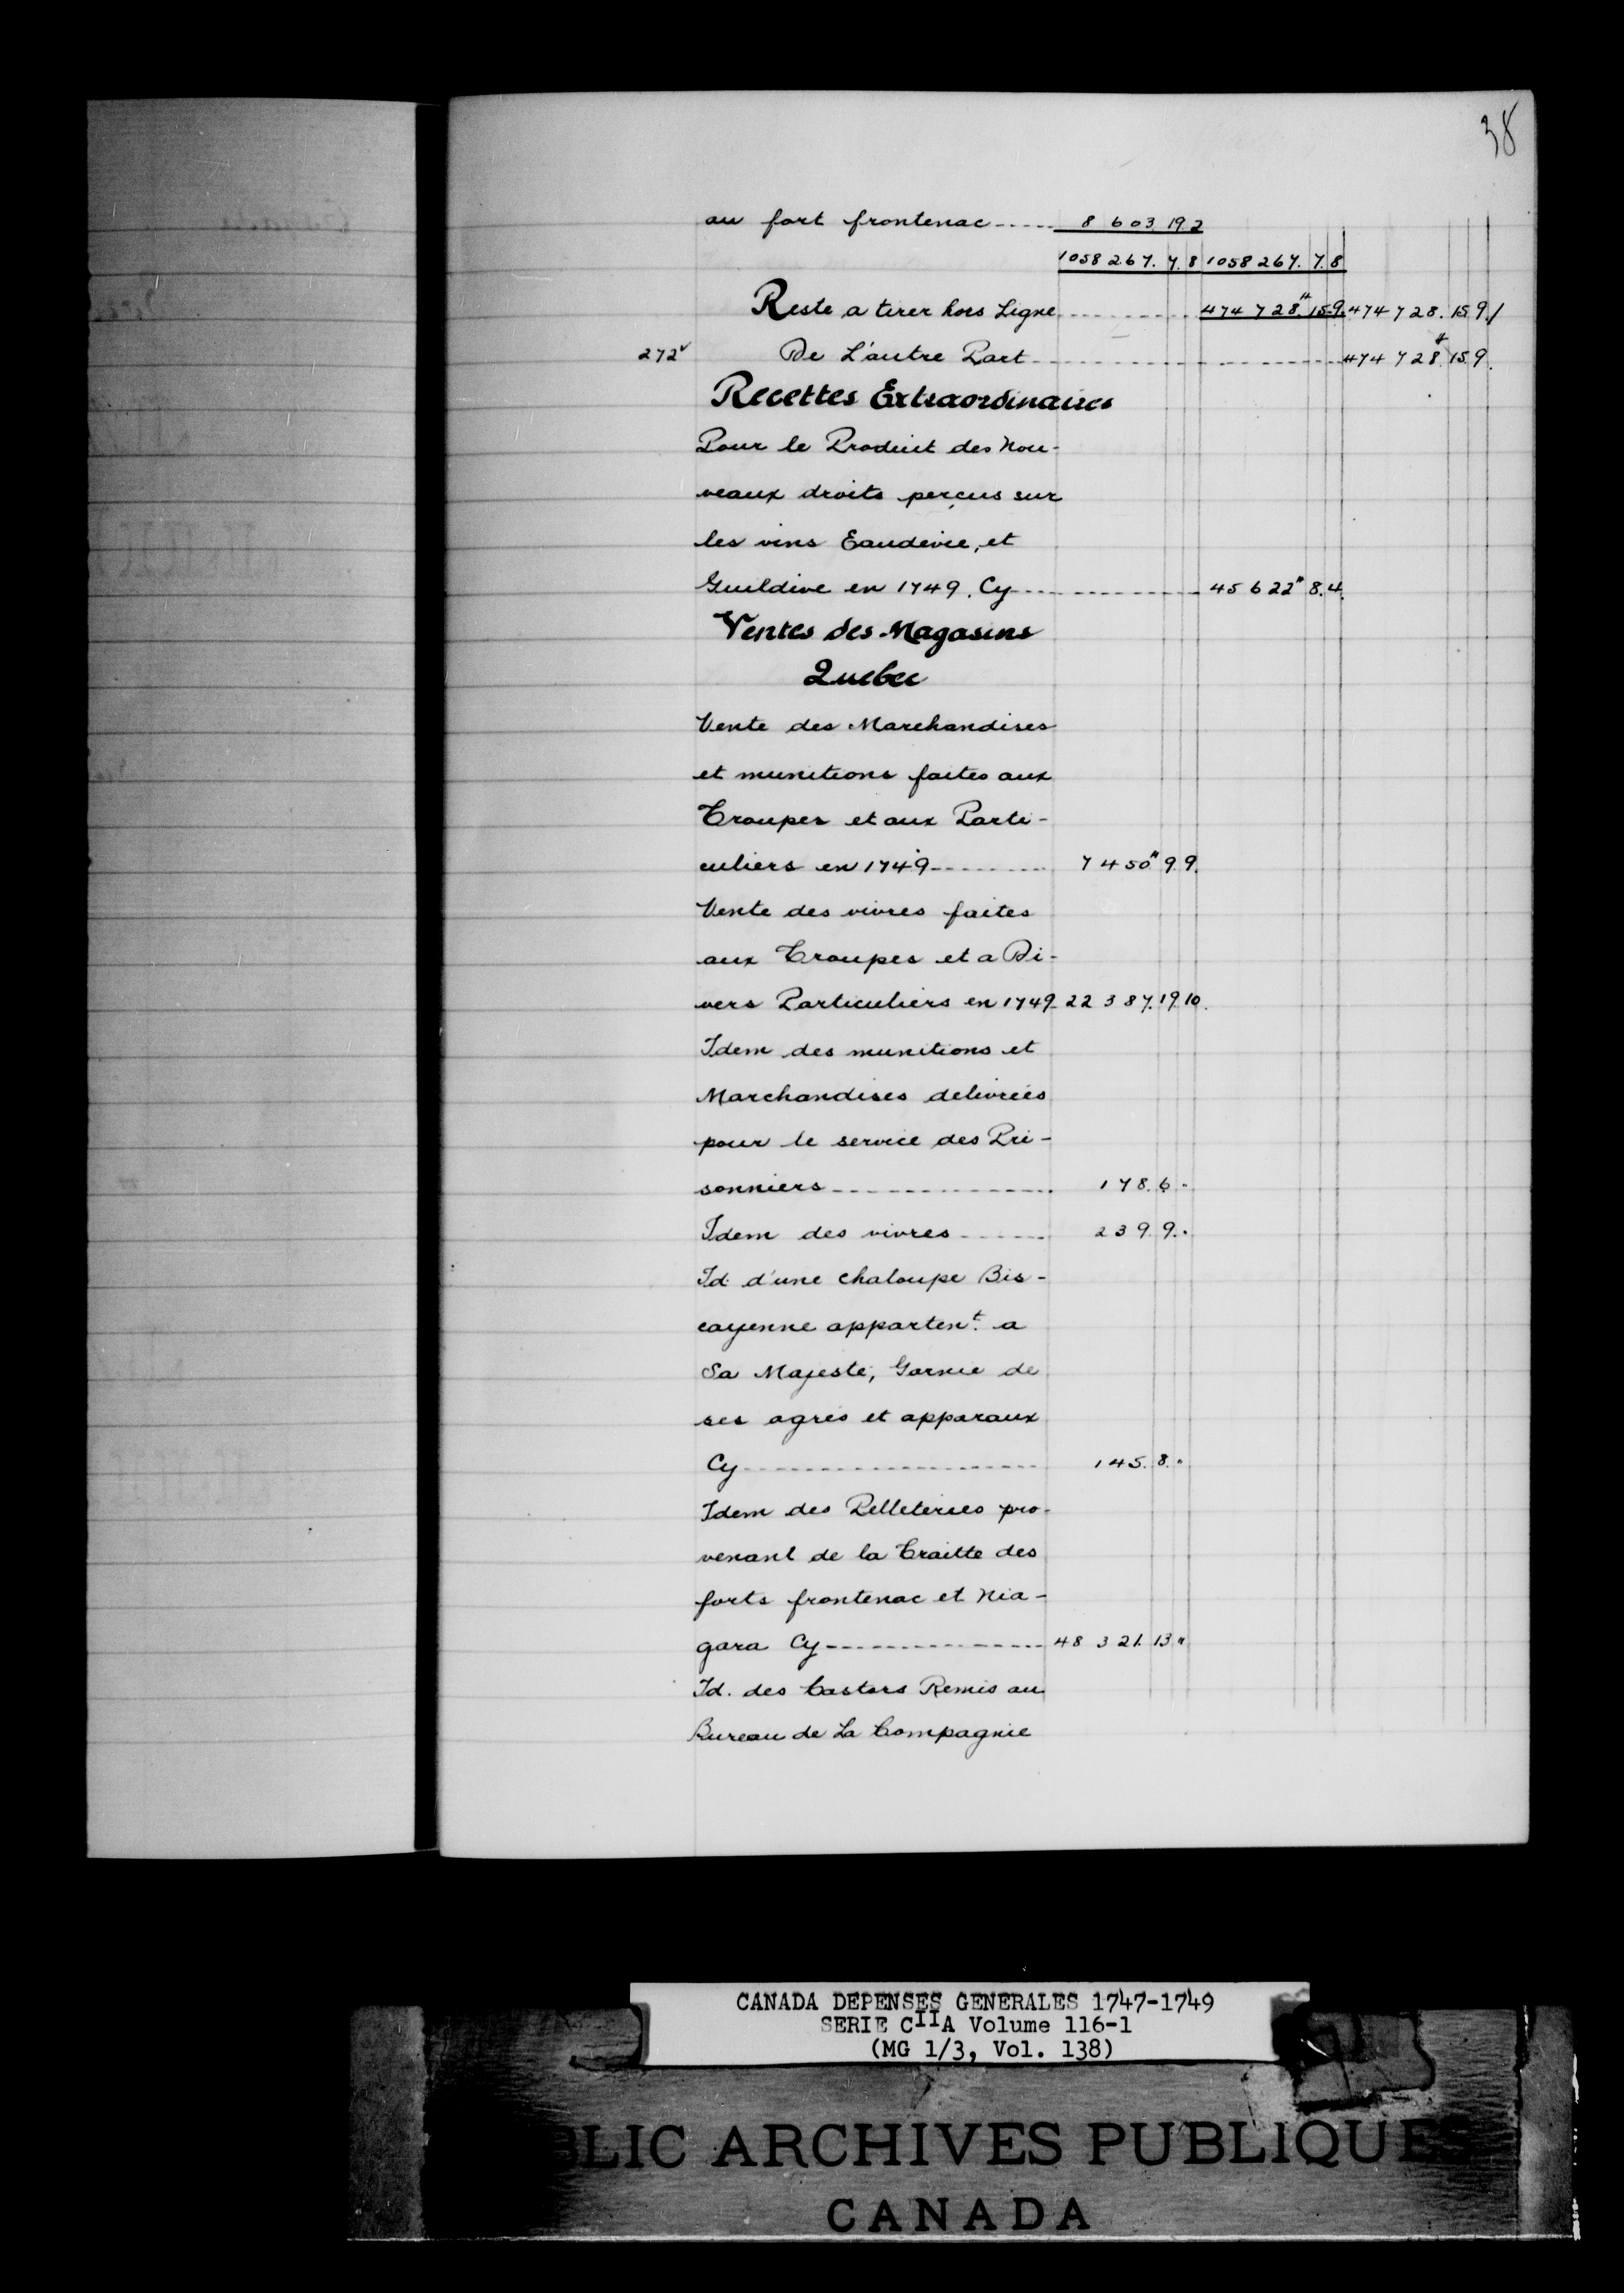 38
au fort frontenac ..... 8 603 19 2
1058 267. 7. 8 1058 267. 7. 8
Reste a tirer hors Ligne ......... 474 728.# 15 9. 474 728. 15 9./
272v De L'autre Part ......... 474 728.# 15 9.
Recettes Extraordinaires
Pour le Produit des Nou-
veaux droits perçus sur
les vins Eaudevie, et
Guildive en 1749. Cy ......... 45 622# 8. 4.
Ventes des Magasins
Quebec
Vente des Marchandises
et munitions faites aux
Troupes et aux Parti-
culiers en 1749 ......... 7 450# 9 9.
Vente des vivres faites
aux Troupes et a Di-
vers Particuliers en 1749 22 3 87. 19 10.
Idem des munitions et
Marchandises delivrées
pour le service des Pri-
sonniers ......... 178. 6 "
Idem des vivres ......... 239. 9. "
Id. d'une chaloupe Bis-
cayenne apparten.t a
Sa Majesté, Garnie de
ses agrès et apparaux
Cy ......... 145. 8. "
Idem des Pelleteries pro-
venant de la Traitte des
forts frontenac et Nia-
gara Cy ......... 48 3 21. 13 "
Id. des Castors Remis au
Bureau de La Compagnie
CANADA DEPENSES GENERALES 1747-1749
SERIE CIIA Volume 116-1
(MG 1/3, Vol. 138)
BLIC ARCHIVES PUBLIQUES
CANADA